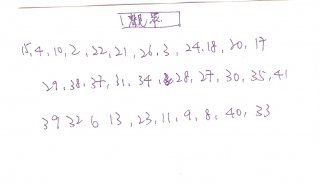 觀眾
15,4,10,2,22,21,26,3,24,18,20,17
29,38,37,31,34,28,27,30,35,41
39 32 6 13,23,11,9,8,40,33